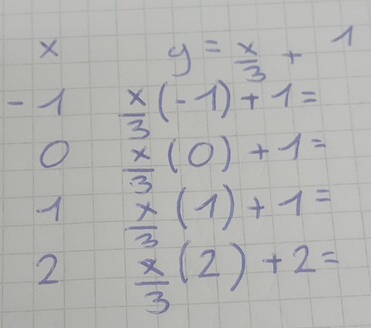 x y = x/3 + 1
-1 x/3 (-1) + 1 =
0 x/3 (0) + 1 =
1 x/3 (1) + 1 =
2 x/3 (2) + 2 =